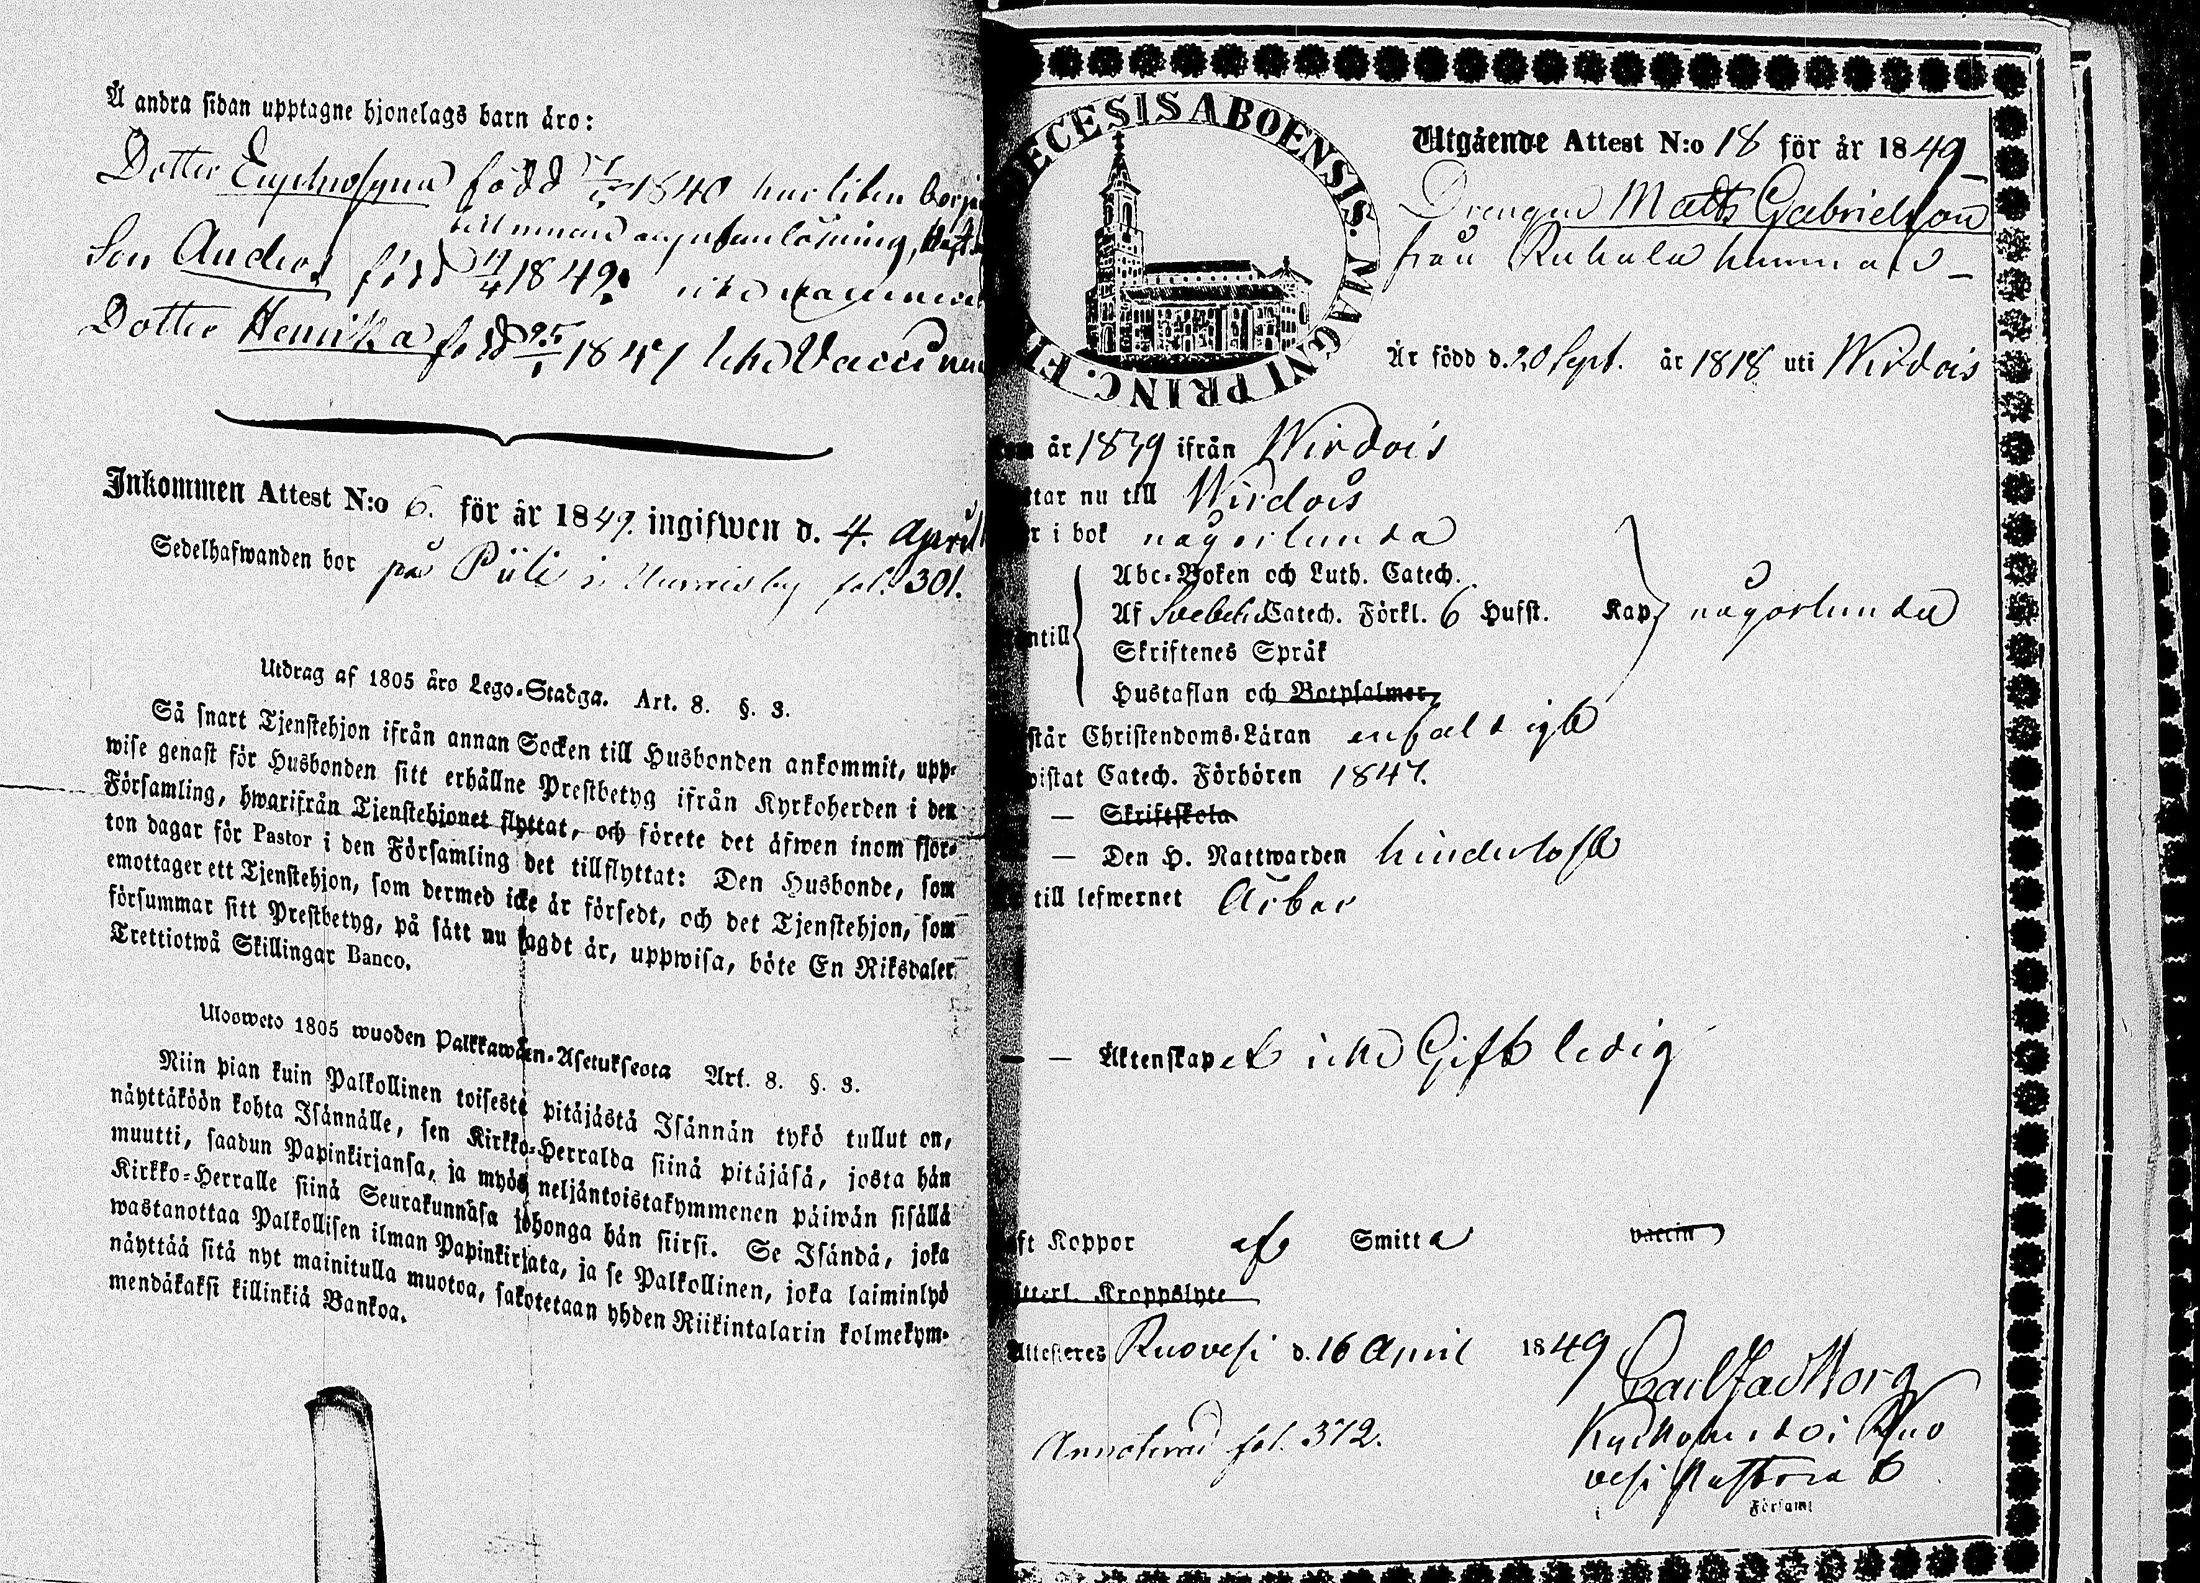 Å andra sidan upptagne hjonelags barn äro:
Dotter Euphrosyna född 1840 har liten börj
till innan
Son Anders född 11/4 1842. icke vaccinerad
Dotter Henrika född 25/1 1847 icke Vaccine
Inkommen Attest N:o 6. för år 1849. ingifwen d. 4. April
Sedelhafwanden bor på Püli i by fol. 301.
Utdrag af 1805 års Lego-Stadga. Art. 8. §. 3.
Så snart Tjenstehjon ifrån annan Socken till Husbonden ankommit, upp-
wise genast för Husbonden sitt erhållne Prestbetyg ifrån Kyrkoherden i den
Församling, hwarifrån Tjenstehjonet flyttat, och förete det äfwen inom fjor-
ton dagar för Pastor i den Församling det tillflyttat: Den Husbonde, som
emottager ett Tjenstehjon, som dermed icke är försedt, och det Tjenstehjon, som
försummar sitt Prestbetyg, på sätt nu sagdt är, uppwisa, böte En Riksdaler
Trettiotwå Skillingar Banco.
Uloosweto 1805 wuoden Palkkawäen-Asetuksesta Art. 8. §. 3.
Niin pian kuin Palkollinen toisesta pitäjästä Isännän tykö tullut on,
näyttäköön kohta Isännälle, sen Kirkko-Herralda siinä pitäjäsä, josta hän
muutti, saadun Papinkirjansa, ja myös neljäntoistakymmenen päiwän sisällä
Kirkko-Herralle siinä Seurakunnasa johonga hän siirsi. Se Isändä, joka
wastanottaa Palkollisen ilman Papinkirjata, ja se Palkollinen, joka laiminlyö
näyttää sitä nyt mainitulla muotoa, sakotetaan yhden Riikintalarin kolmekym-
mendäkaksi killinkiä Bankoa.
DECESIS ABOENSIS. MAGNI PRINC. FI
Utgående Attest N:o 18 för år 1849
Drengen Matts Gabrielsson
från Ruhala hemman
Är född d. 20 Sept. år 1818 uti Wirdois
år 1839 ifrån Wirdois
ttar nu till Wirdois
r i bok någorlunda
Abc-Boken och Luth. Catech.
Af Svebelii Catech. Förkl. 6 Hufst. Kap. någorlunda
antill
Skriftenes Språk
Hustaflan och Botpsalmer
står Christendoms-Läran enfaldigt
vistat Catech. Förhören 1847.
— Skriftskola
— Den H. Nattwarden hinderlöst
till lefwernet Ärbar
— — Äktenskapet icke Gift ledig
ft Koppor af Smitta vaccin
tterl. Kroppslyte
Attesteres Ruovesi d. 16 April 1849
Annoterad fol. 372.
Kyrkoherde i Ruo
vesi Pastorat
Församl